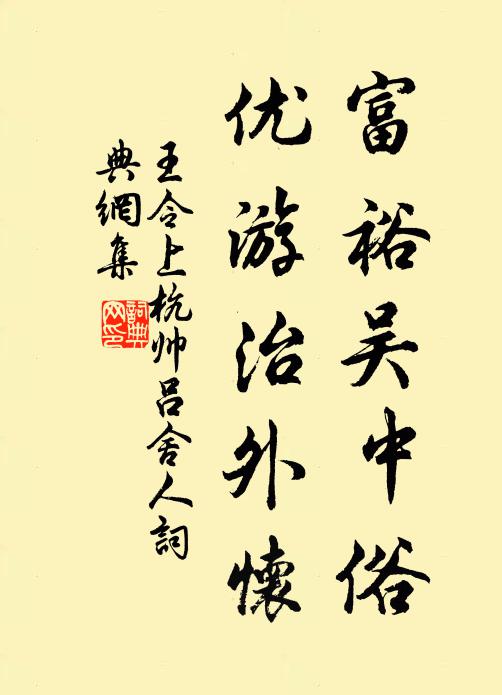 富裕吴中俗
优游治外懷
王令上杭帅吕舍人詞
典網集
詞典網印